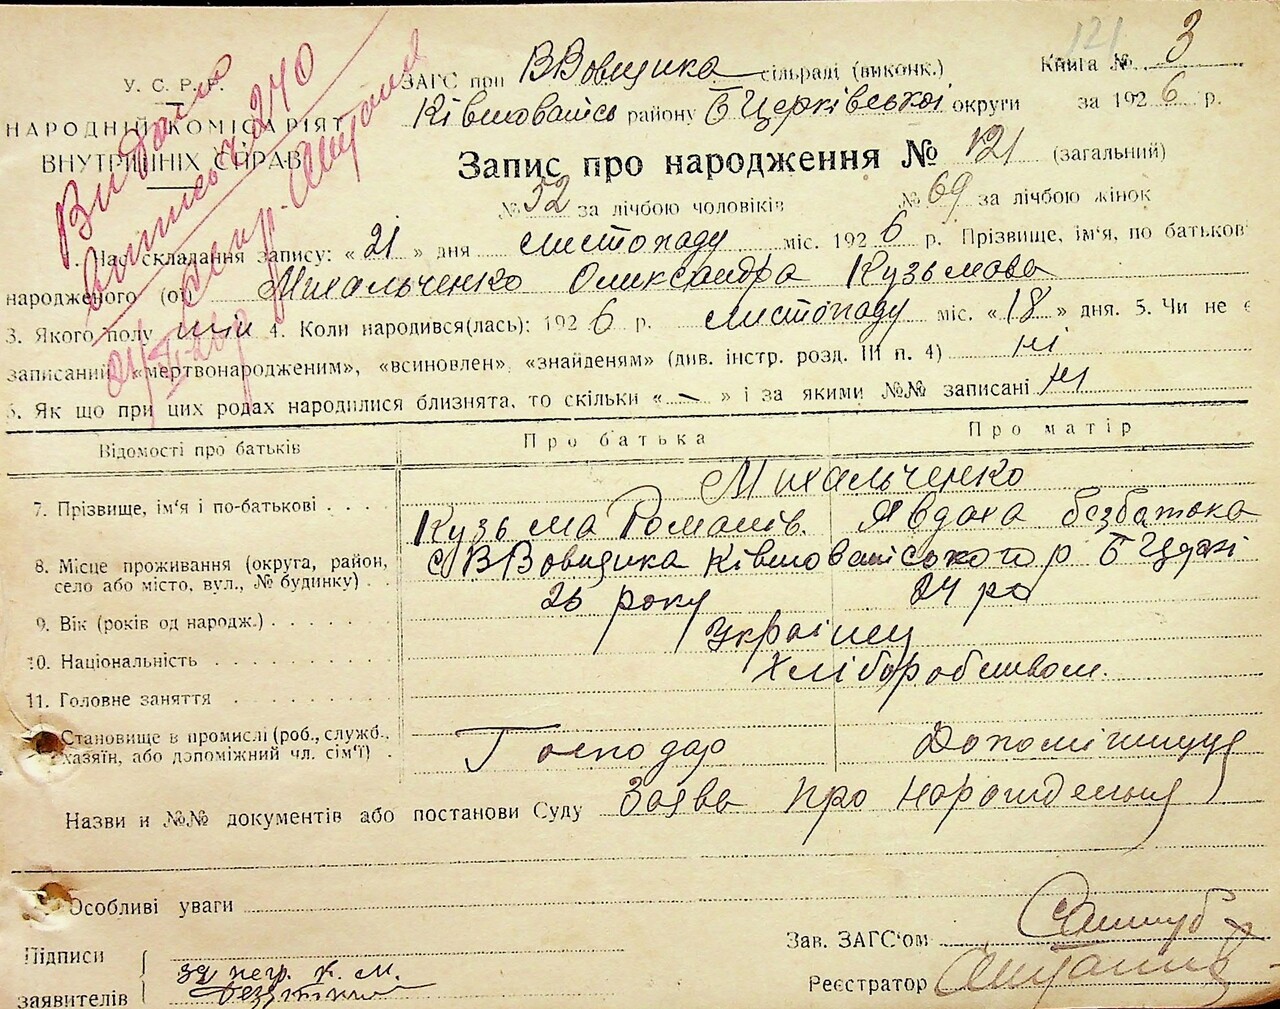 121
У. С. Р. Р.
НАРОДНІЙ КОМІСАРІЯТ
ВНУТРІШНІХ СПРАВ
Видано
240
ЗАГС при ВВовщика сільраді (виконк.)
Книга № 3
району БЦерківської округи за 1926 р.
Запис про народження № 121 (загальний)
№ 52 за лічбою чоловіків № 69 за лічбою жінок
1. Час складання запису: «21» дня листопаду міс. 1926 р. Прізвище, ім'я, по батькові
народженого (ої) Михальченко Олександра Кузьмова
3. Якого полу 4. Коли народився(лась): 1926 р. листопаду міс. «18» дня. 5. Чи не є
записаний «мертвонародженим», «всиновлен», «знайденям» (див. інстр. розд. III п. 4) ні
6. Як що при цих родах народилися близнята, то скільки « — » і за якими №№ записані ні
Відомості про батьків
Про батька
Про матір
7. Прізвище, ім'я і по-батькові
Михальченко
Кузьма Романів. Явдоха безбатька
8. Місце проживання (округа, район,
село або місто, вул., № будинку)
с ВВовщика
9. Вік (років од народж.)
26 року 24 ро
10. Національність
Українці
11. Головне заняття
Хліборобством.
Становище в промислі (роб., служб.,
хазяїн, або допоміжний чл. сім'ї)
Господар
Назви и №№ документів або постанови Суду Заява про народження
Особливі уваги
Зав. ЗАГС'ом
Підписи
заявителів
за негр. К. М.
Реєстратор